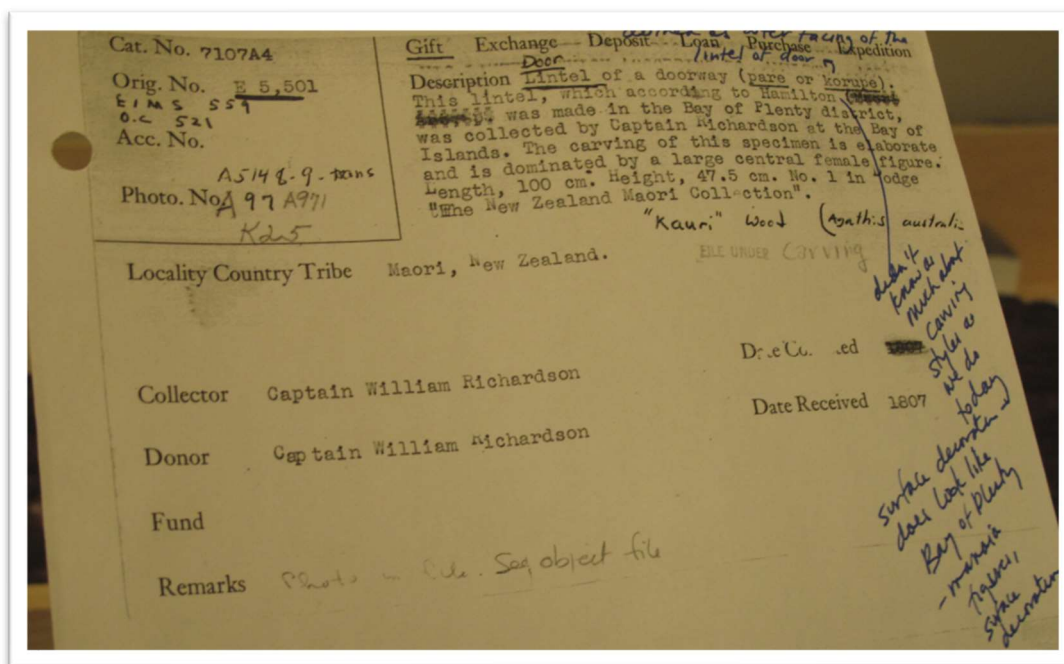 Cat. No. 7107A4
Orig. No. E 5,501
EIMS 559
O.C 521
Acc. No.
A5148-9-trans
Photo. No. A97 A971
K25
as outer facing of the
lintel of door
Gift Exchange Deposit Loan Purchase Expedition
Door
Description Lintel of a doorway (pare or korupe).
This lintel, which according to Hamilton
was made in the Bay of Plenty district,
was collected by Captain Richardson at the Bay of
Islands. The carving of this specimen is elaborate
and is dominated by a large central female figure.
Length, 100 cm. Height, 47.5 cm. No. 1 in Dodge
"The New Zealand Maori Collection".
"Kauri" wood (Agathis australi
FILE UNDER Carving
Locality Country Tribe Maori, New Zealand.
didn't
know as
much about
carving
styles as
we do
today
Collector Captain William Richardson
Date Received 1807
Donor Captain William Richardson
Fund
Remarks Photo in file. See object file
surface decoration
does look like
Bay of Plenty
- manaia
figures,
surface
decoration